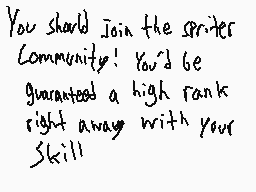 You should Join the spriter
Community! You'd be
guaranteed a high rank
right away with your
skill